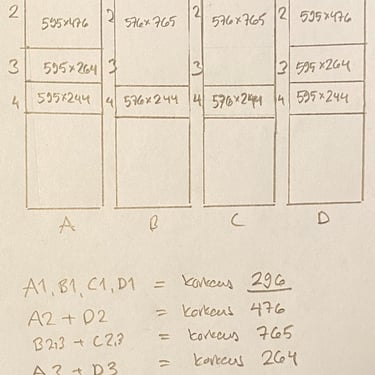 2 595x476 2 576x765 2 576x765 2 595x476
3 595x264 3 3 3 595x264
4 595x244 4 576x244 4 576x244 4 595x244
A B C D
A1, B1, C1, D1 = korkeus 296
A2 + D2 = korkeus 476
B2,3 + C2,3 = korkeus 765
A3 + D3 = korkeus 264